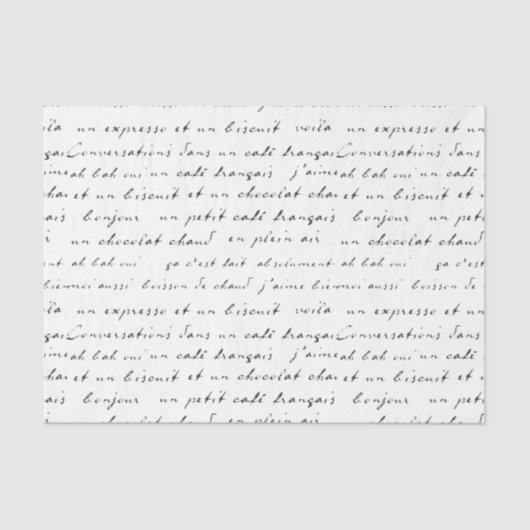 ila un expresso et un biscuit voila un expresso et un
gai Conversations dans un café françai Conversations dans
ime ah bah oui un café français j'aime ah bah oui un café
cha et un biscuit et un chocolat cha et un biscuit et
ais bonjour un petit café français bonjour un peti
un chocolat chaud en plein air un chocolat chaud
ant ah bah oui ça c'est fait absolument ah bah oui ça c'est
biè moi aussi boisson de chaud j'aime biè moi aussi boisson
ila un expresso et un biscuit voila un expresso et un
gai Conversations dans un café françai Conversations dans
ime ah bah oui un café français j'aime ah bah oui un café
cha et un biscuit et un chocolat cha et un biscuit et
ais bonjour un petit café français bonjour un peti
un chocolat chaud en plein air un chocolat chaud